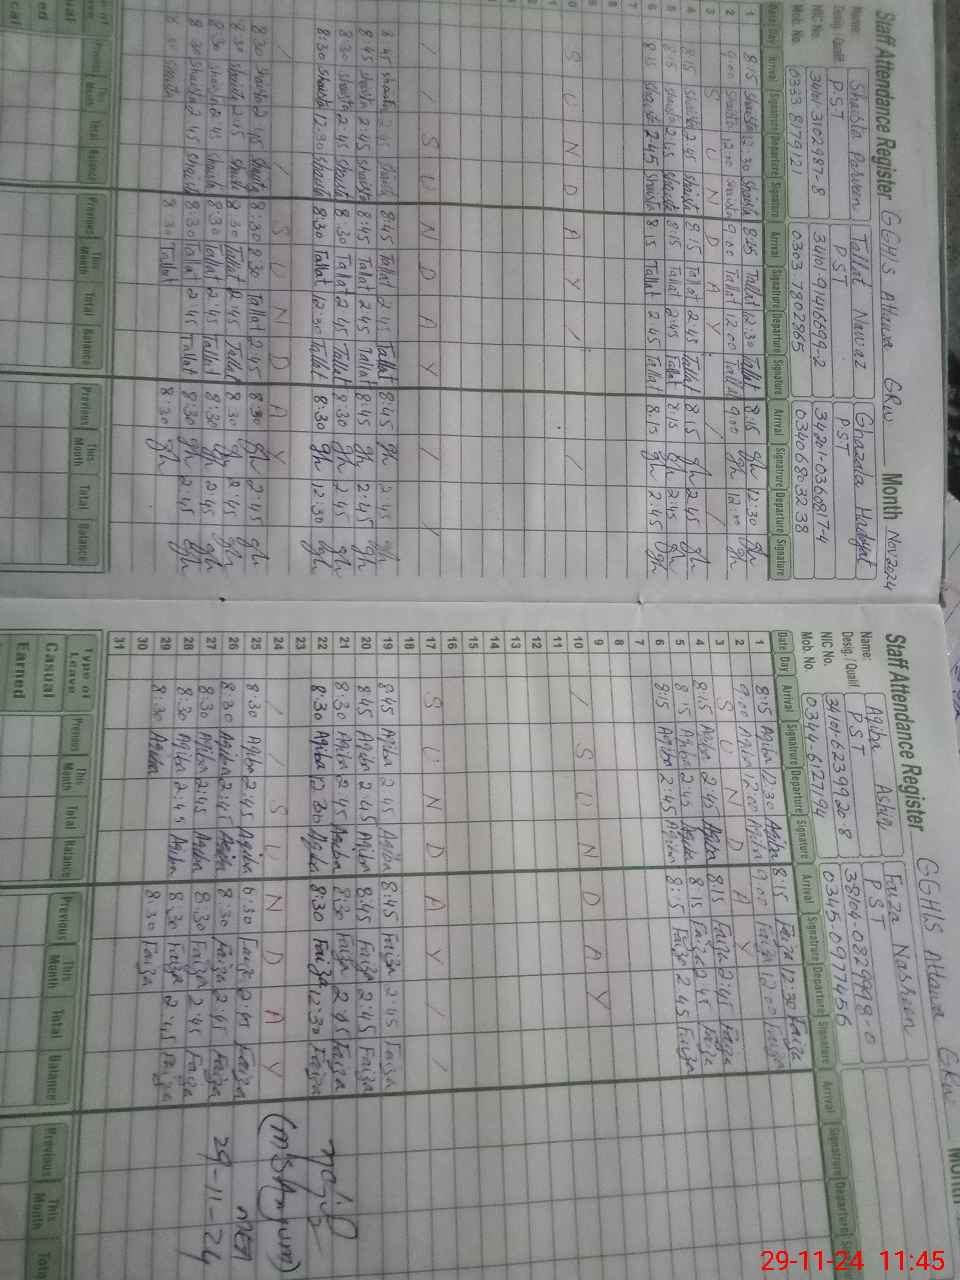 Staff Attendance Register GGHS Attawa GRW Month Nov 2024
Name: Shaista Parveen Tallat Nawaz Ghazala Hadayat
Desig. / Qualif PST PST PST
NIC No. 3401-3102987-8 34101-9146699-2 34201-0360817-4
Mob. No. 0333 8179121 0303 7802965
Date Day Arrival Signatrure Departure Signature Arrival Signatrure Departure Signature Arrival Signatrure Departure Signature
1 8:15 Shaista 12:30 Shaista 8:15 Tallat 12:30 Tallat 8:15 gh 12:30 gh
2 9:00 Shaista 12:00 Shaista 9:00 Tallat 12:00 Tallat 9:00 gh 12:00 gh
3 S U N D A Y
4 8:15 Shaista 2:45 Shaista 8:15 Tallat 2:45 Tallat 8:15 gh 2:45 gh
5 8:15 Shaista 2:45 Shaista 8:15 Tallat 2:45 Tallat 8:15 gh 2:45 gh
6 8:15 Shaista 2:45 Shaista 8:15 Tallat 2:45 Tallat 8:15 gh 2:45 gh
7
8
9
10 S U N D A Y
11
12
13
14
15
16
S U N D A Y
8:45 Shaista 2:45 Shaista 8:45 Tallat 2:45 Tallat 8:45 gh 2:45 gh
8:45 Shaista 2:45 Shaista 8:45 Tallat 2:45 Tallat 8:45 gh 2:45 gh
8:30 Shaista 2:45 Shaista 8:30 Tallat 2:45 Tallat 8:30 gh 2:45 gh
8:30 Shaista 12:30 Shaista 8:30 Tallat 12:30 Tallat 8:30 gh 12:30 gh
S U N D A Y
8:30 Shaista 2:45 Shaista 8:30 Tallat 2:45 8:30 gh 2:45 gh
8:30 Shaista 2:45 Shaista 8:30 Tallat 2:45 Tallat 8:30 gh 2:45 gh
8:30 Shaista 2:45 Shaista 8:30 Tallat 2:45 Tallat 8:30 gh 2:45 gh
8:30 Shaista 2:45 Shaista 8:30 Tallat 2:45 Tallat 8:30 gh 2:45 gh
8:30 Shaista 8:30 Tallat 8:30 gh
Previous This Month Total Balance Previous This Month Total Balance Previous This Month Total Balance
Staff Attendance Register GGHS Attawa GRW
Name: Aqiba Ashiq Faiza Nasren
Desig. / Qualif PST PST
NIC No. 34101-6239920 8 38104-0829998-0
Mob. No. 0344-6127194 0345-0977456
Date Day Arrival Signatrure Departure Signature Arrival Signatrure Departure Signature Arrival Signatrure Departure
1 8:15 Aqiba 12:30 Aqiba 8:15 Faiza 12:30 Faiza
2 9:00 Aqiba 12:00 Aqiba 9:00 Faiza 12:00 Faiza
3 S U N D A Y
4 8:15 Aqiba 2:45 Aqiba 8:15 Faiza 2:45 Faiza
5 8:15 Aqiba 2:45 Aqiba 8:15 Faiza 2:45 Faiza
6 8:15 Aqiba 2:45 Aqiba 8:15 Faiza 2:45 Faiza
7
8
9
10 S U N D A Y
11
12
13
14
15
16
17 S U N D A Y
18
19 8:45 Aqiba 2:45 Aqiba 8:45 Faiza 2:45 Faiza
20 8:45 Aqiba 2:45 Aqiba 8:45 Faiza 2:45 Faiza
21 8:30 Aqiba 2:45 Aqiba 8:30 Faiza 2:45 Faiza
22 8:30 Aqiba 12:30 Aqiba 8:30 Faiza 12:30 Faiza
23
24 S U N D A Y
25 8:30 Aqiba 2:45 Aqiba 8:30 Faiza 2:45 Faiza
26 8:30 Aqiba 2:45 Aqiba 8:30 Faiza 2:45 Faiza
27 8:30 Aqiba 2:45 Aqiba 8:30 Faiza 2:45 Faiza
28 8:30 Aqiba 2:45 Aqiba 8:30 Faiza 2:45 Faiza
29 8:30 Aqiba 8:30 Faiza
30
31
MEA
29-11-24
Type of Leave Previous This Month Total Balance Previous This Month Total Balance Previous This Month Total
Casual
Earned
29-11-24 11:45